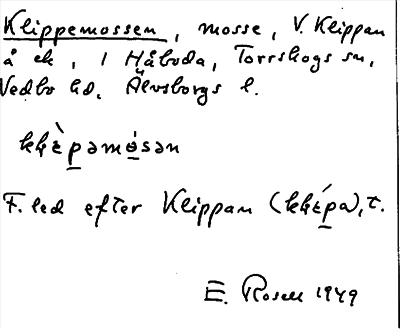 Klippemossen, mosse, V. Klippan
å ek, 1 Håboda, Torrskogs sn,
Vedbo hd. Älvsborgs l.
F. led efter Klippan (
), t.
E. Rosell 1949